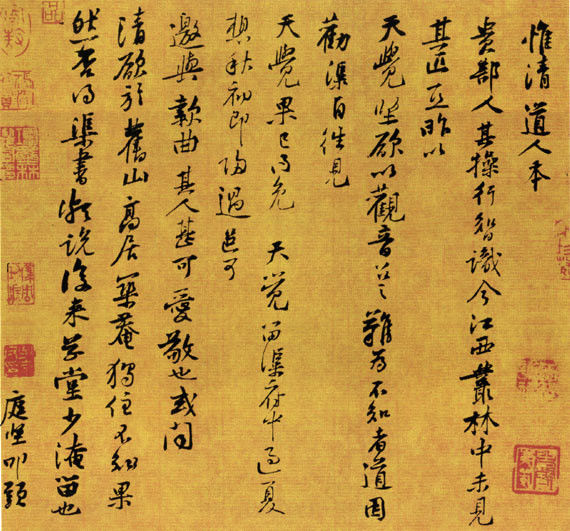 惟清道人本
贵部人其操行智識今江西叢林中未見
其匹亞昨以
天覺坐欲以觀音召之難為不知者道因
勸渠自往見
天覺果已得免天覺留渠府中過夏
想秋初即歸過邑可
邀與款曲其人甚可愛敬也或聞
清欲於舊山高居築菴獨住不知果
然否得渠書頗說後來草堂少淹留也
庭堅叩頭